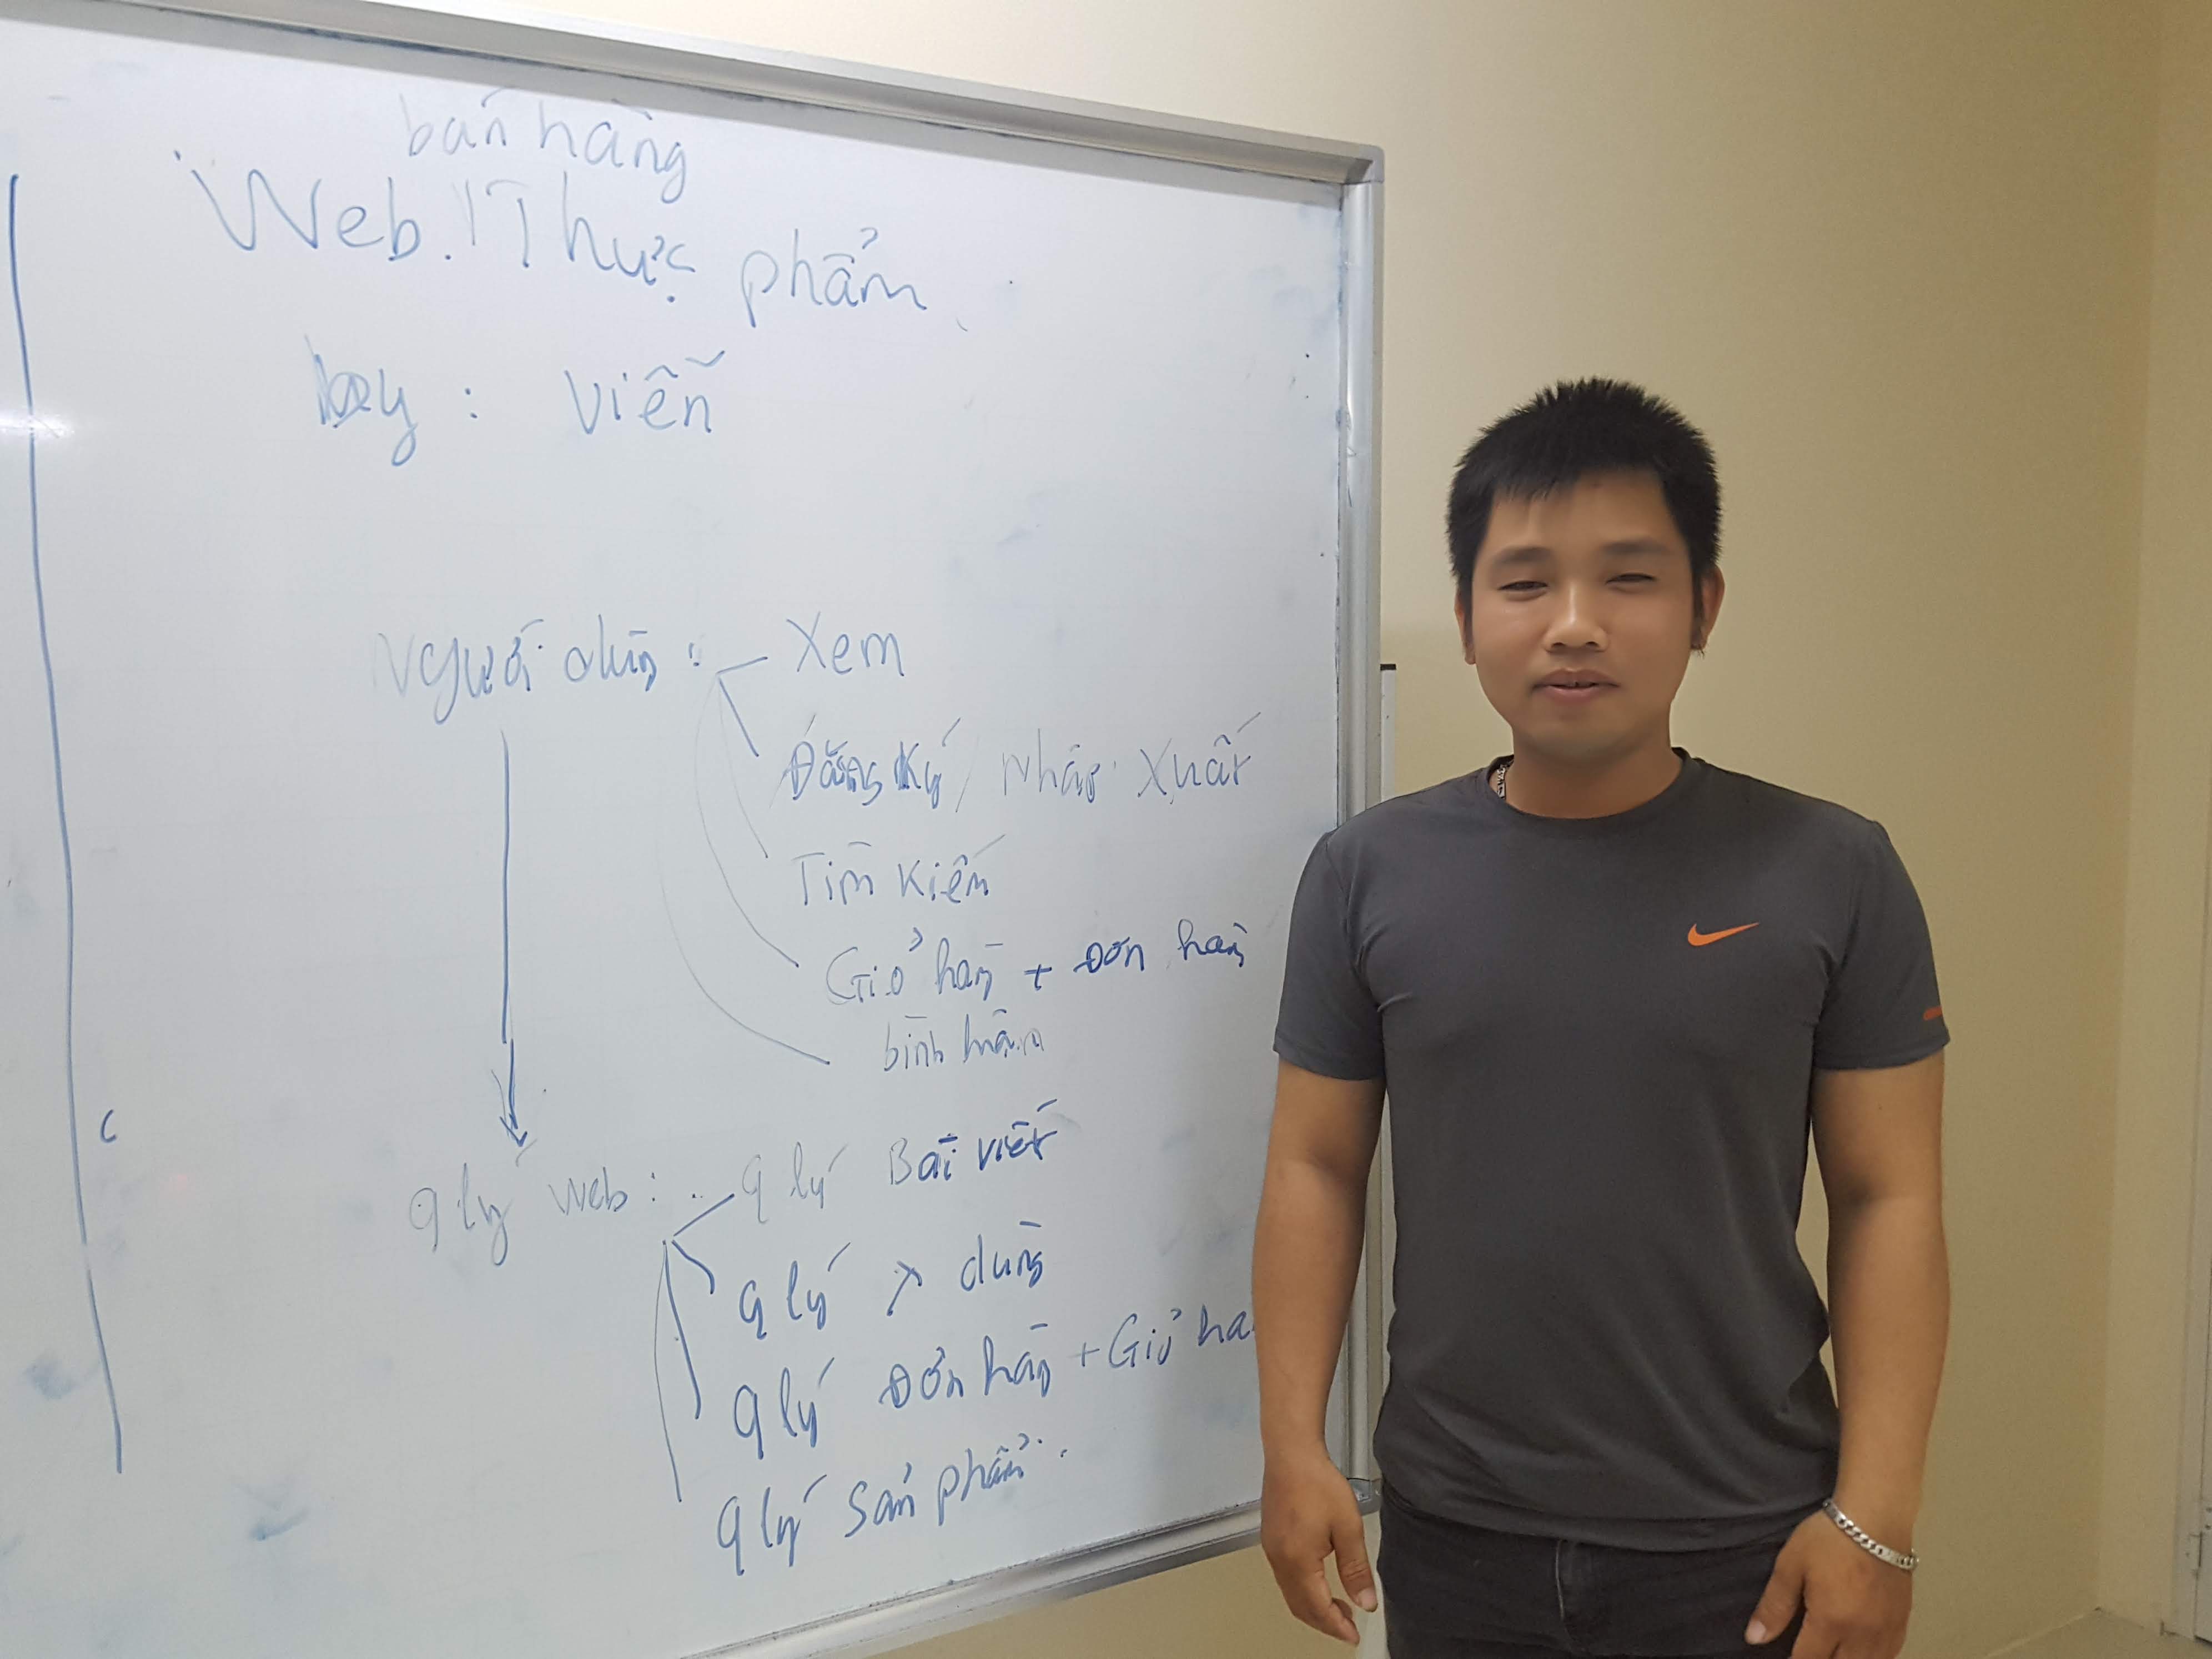 bán hàng
Web Thực phẩm
key : Viễn
Người dùng : Xem
Đăng ký / Nhập Xuất
Tìm Kiếm
Giỏ hàng + Đơn hàng
bình luận
q lý Web : q lý Bài viết
q lý dùng
q lý Đơn hàng + Giỏ hà
q lý Sản phẩm